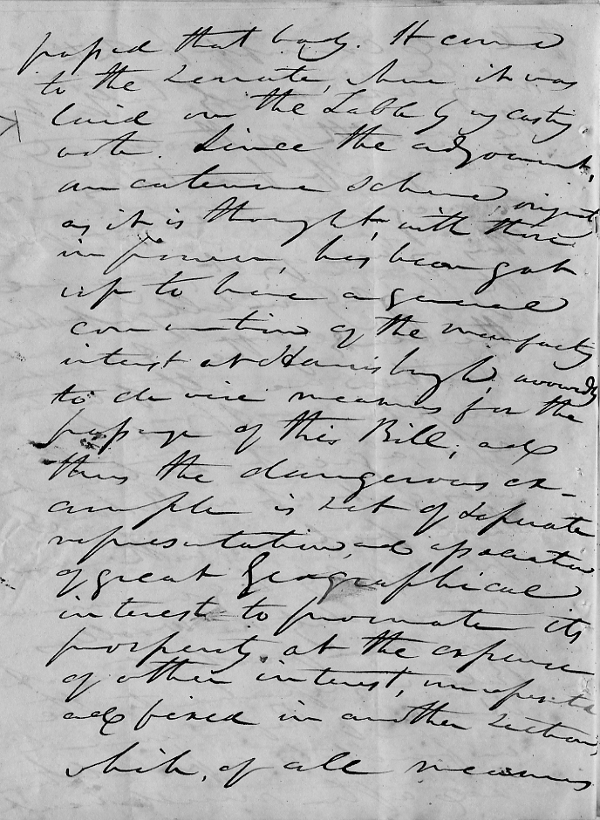 passed that body. It came
to the Senate, where it was
laid on the Table by my casting
vote. Since the adjournment,
an extensive scheme, originating
as it is thought, with those
in power, has been got
up to have a general
convention of the manufacturing
interest at Harrisburgh, avowedly
to devise means for the
passage of this Bill, and
thus the dangerous ex-
ample is set of seperate
representation, and association
of great Geographical
interest to promote its
prosperity at the expense
of other interest, unrepresented
and fixed in another section,
which, of all measures